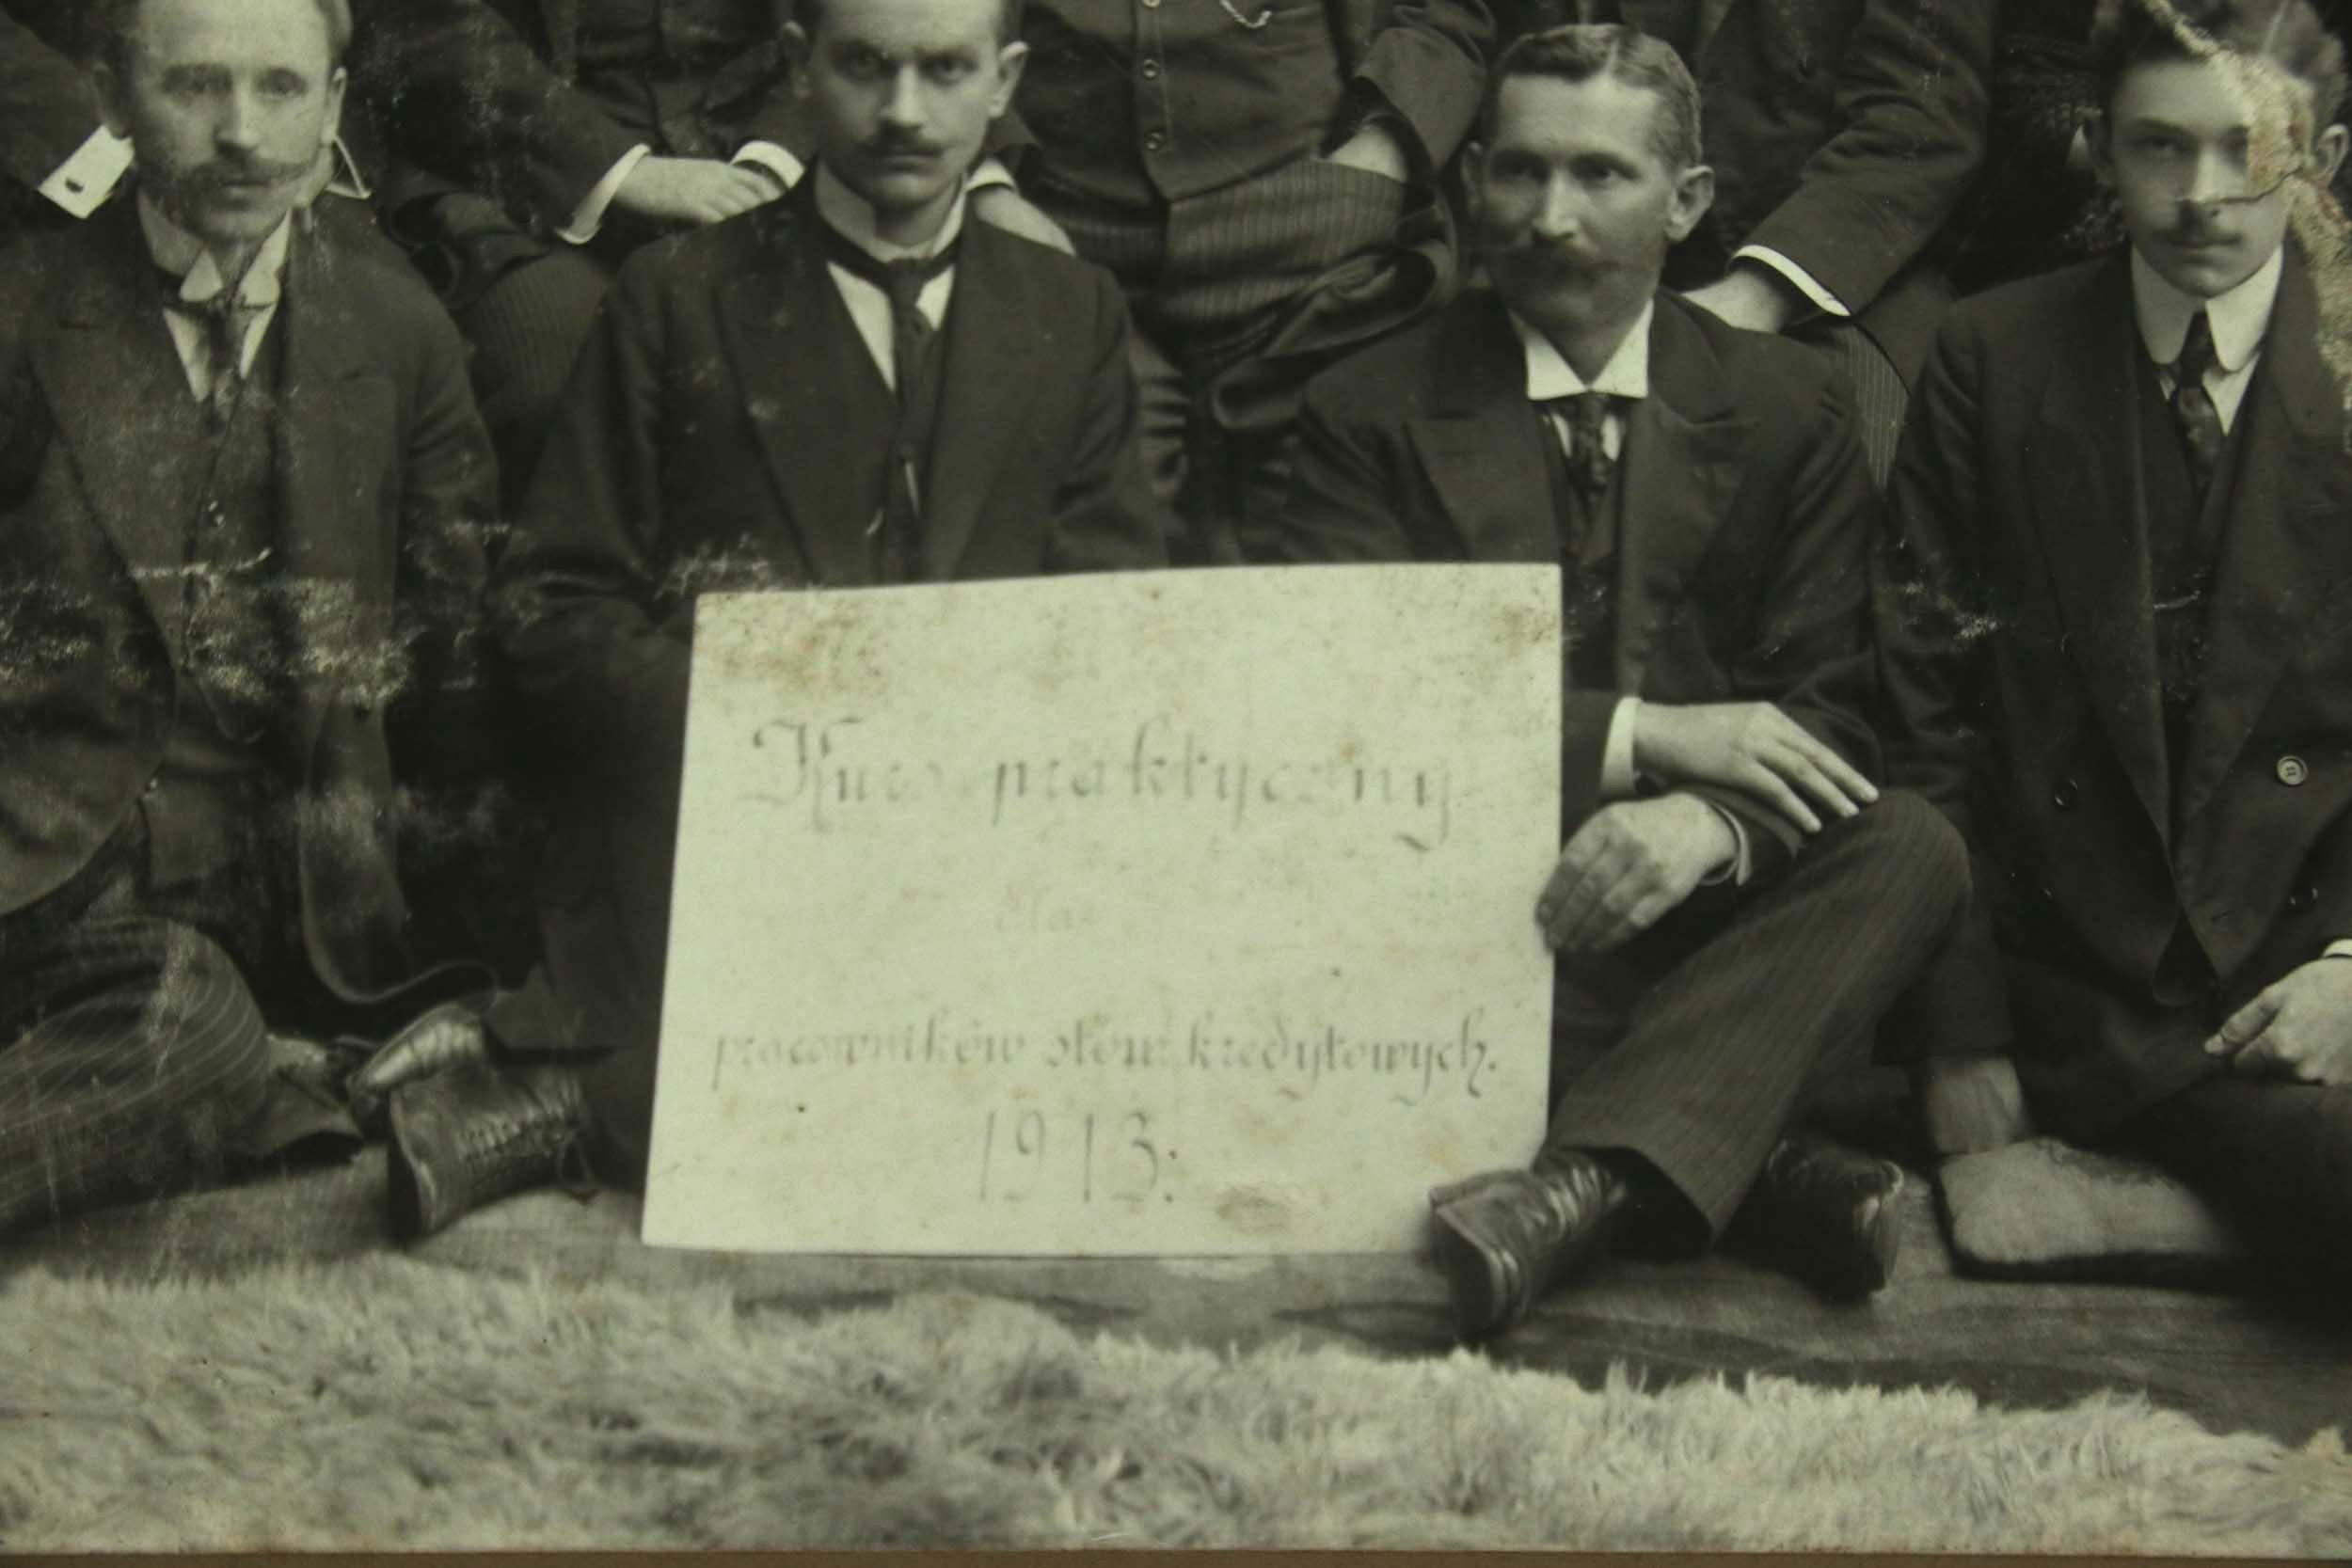 Kurs praktyczny
dla
pracowników stow. kredytowych.
1913.